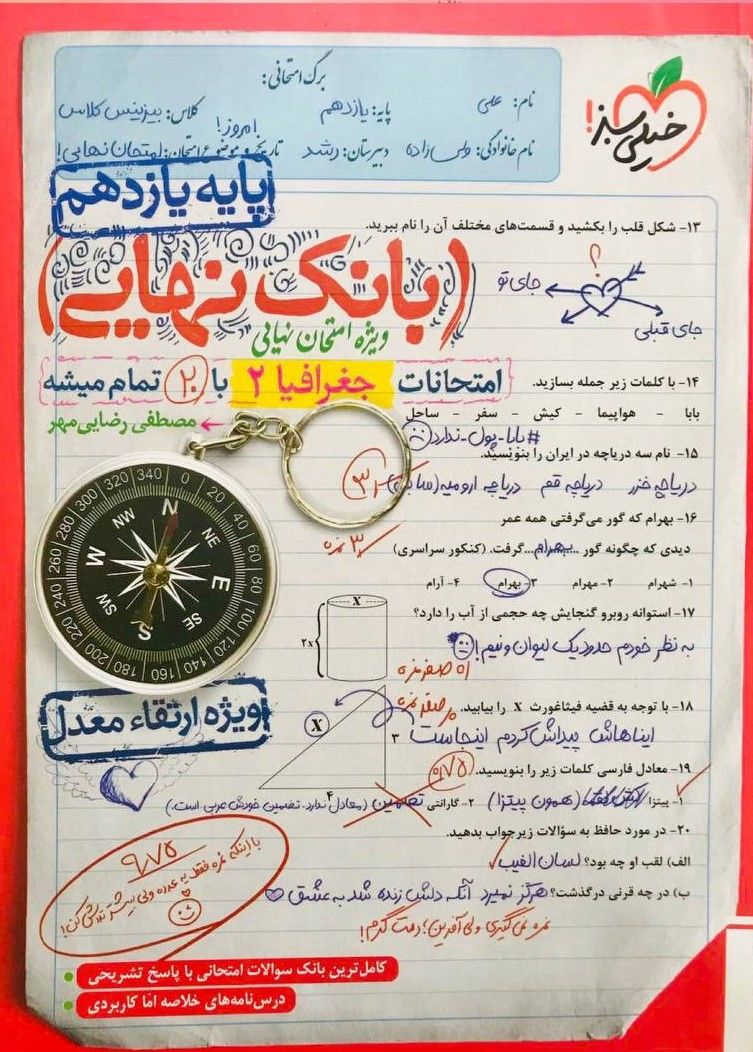 برگ امتحانی:
نام: علی
پایه: یازدهم
کلاس: بیزینس کلاس
نام خانوادگی: ولی زاده
دبیرستان: رشد
امروز!
تاریخ و موضوع امتحان: امتحان نهایی!
خیلی سبز!
پایه یازدهم
۱۳- شکل قلب را بکشید و قسمت‌های مختلف آن را نام ببرید.
(بانک نهایی)
؟
جای تو
جای قبلی
ویژه امتحان نهایی
امتحانات جغرافیا ۲ با ۲۰ تمام میشه
مصطفی رضایی مهر
۱۴- با کلمات زیر جمله بسازید.
بابا - هواپیما - کیش - سفر - ساحل
#بابا_پول_ندارد
۱۵- نام سه دریاچه در ایران را بنویسید.
دریاچه خزر دریاچه قم دریاچه ارومیه (سابق)
۱۶- بهرام که گور می‌گرفتی همه عمر
دیدی که چگونه گور ...بهرام... گرفت. (کنکور سراسری)
۳ نمره
۱- شهرام ۲- مهرام ۳- بهرام ۴- آرام
۱۷- استوانه روبرو گنجایش چه حجمی از آب را دارد؟
X
2x
به نظر خودم حدود یک لیوان و نیم!
اه صفر نمره
ویژه ارتقاء معدل
۱۸- با توجه به قضیه فیثاغورث X را بیابید.
صفر نمره
X
۳
۴
ایناهاش پیداش کردم اینجاست
۱۹- معادل فارسی کلمات زیر را بنویسید.
۰/۷۵
۱- پیتزا (همون پیتزا) ۲- گارانتی تضمین (معادل ندارد. تضمین خودش عربی است.)
۲۰- در مورد حافظ به سؤالات زیر جواب بدهید.
الف) لقب او چه بود؟ لسان الغیب
ب) در چه قرنی درگذشت؟ هرگز نمیرد آنکه دلش زنده شد به عشق
نمره نمی‌گیری ولی آفرین؛ دمت گرم!
۹/۷۵
با اینکه نمره فقط یه عدده ولی بیشتر تلاش کن!
0 20 40 60 80 100 120 140 160 180 200 220 240 260 280 300 320 340
N NE E SE S SW W NW
کامل‌ترین بانک سوالات امتحانی با پاسخ تشریحی
درس‌نامه‌های خلاصه اما کاربردی